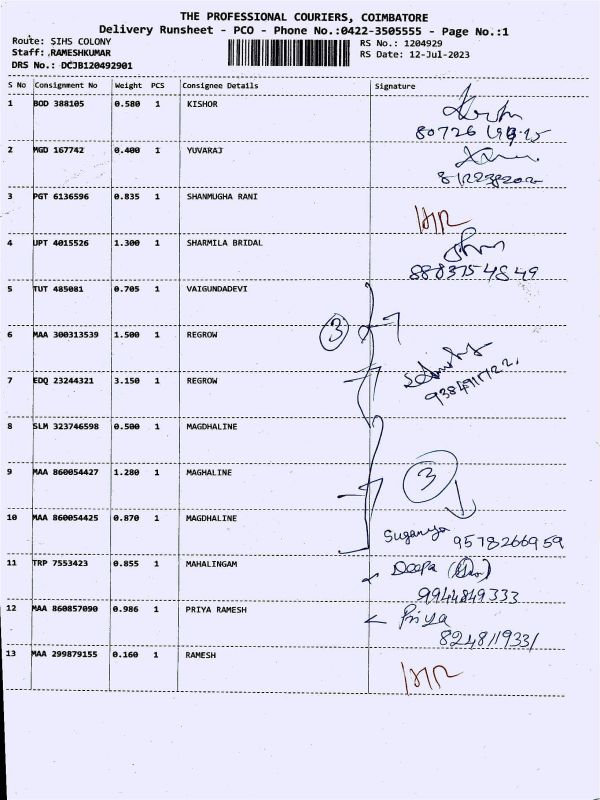 THE PROFESSIONAL COURIERS, COIMBATORE
Delivery Runsheet - PCO - Phone No.:0422-3505555 - Page No.:1
Route: SIHS COLONY
RS No.: 1204929
Staff: ,RAMESHKUMAR
RS Date: 12-Jul-2023
DRS No.: DCJB120492901
S No Consignment No Weight PCS Consignee Details Signature
1 BOD 388105 0.580 1 KISHOR
2 MGD 167742 0.400 1 YUVARAJ
3 PGT 6136596 0.835 1 SHANMUGHA RANI
4 UPT 4015526 1.300 1 SHARMILA BRIDAL
8883754849
5 TUT 485081 0.705 1 VAIGUNDADEVI
3
6 MAA 300313539 1.500 1 REGROW
7 EDQ 23244321 3.150 1 REGROW
8 SLM 323746598 0.500 1 MAGDHALINE
9 MAA 860054427 1.280 1 MAGHALINE
3
10 MAA 860054425 0.870 1 MAGDHALINE
Suganya 9578266959
11 TRP 7553423 0.855 1 MAHALINGAM
Deepa
9944849333
12 MAA 860857090 0.986 1 PRIYA RAMESH
Priya
8248119331
13 MAA 299879155 0.160 1 RAMESH